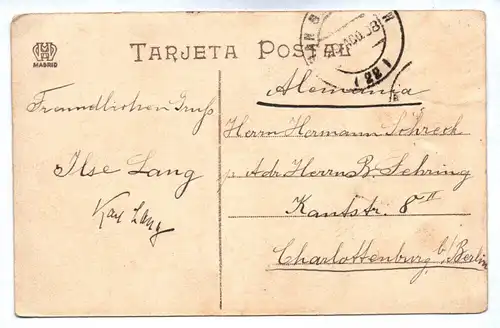 MADRID
TARJETA POSTAL
AGO.08
(22)
Alemania
Freundlichen Gruß
Ilse Lang
Karl Lang
Herrn Hermann Schreck
p. Adr. Herrn B. Fehring
Kantstr. 8 II
Charlottenburg b/Berlin